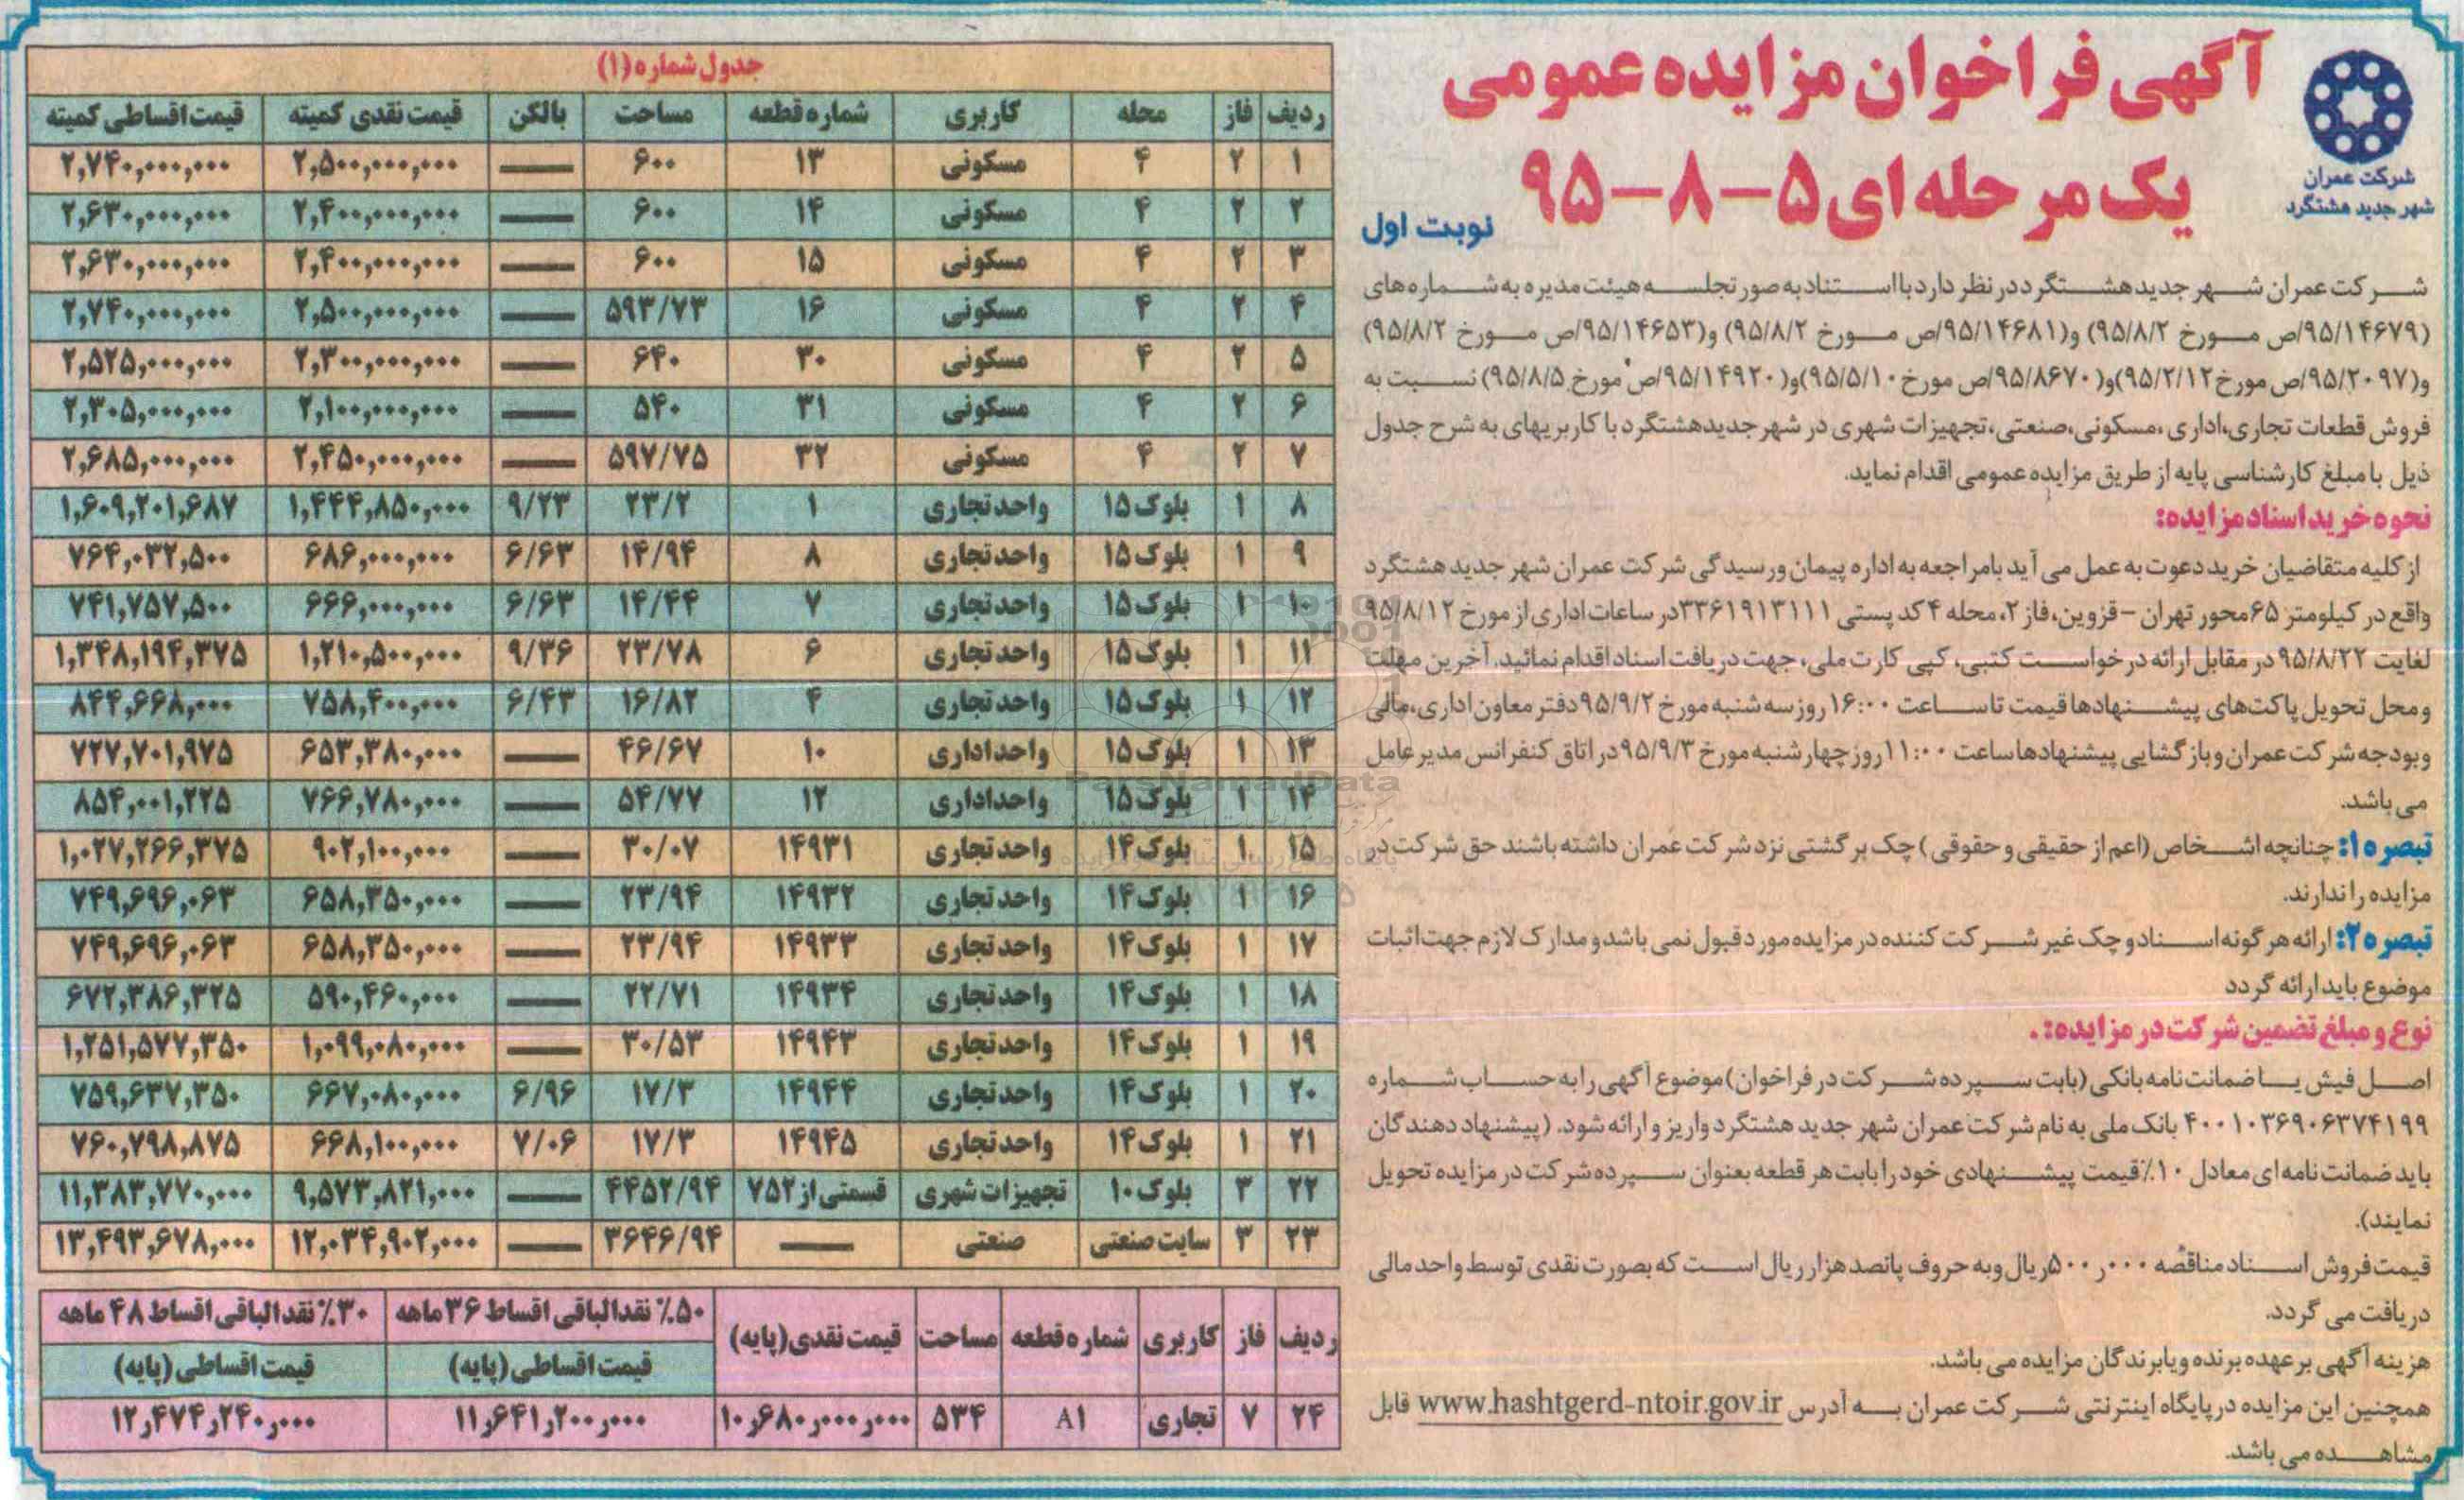 آگهی فراخوان مزایده عمومی
یک مرحله ای ۵-۸-۹۵
نوبت اول
شرکت عمران
شهر جدید هشتگرد
شرکت عمران شهر جدید هشتگرد در نظر دارد با استناد به صورتجلسه هیئت مدیره به شماره های
(۹۵/۱۴۶۷۹/ص مورخ ۹۵/۸/۲) و(۹۵/۱۴۶۸۱/ص مورخ ۹۵/۸/۲) و(۹۵/۱۴۶۵۳/ص مورخ ۹۵/۸/۲)
و(۹۵/۲۰۹۷/ص مورخ ۹۵/۲/۱۲)و(۹۵/۸۶۷۰/ص مورخ ۹۵/۵/۱۰)و(۹۵/۱۴۹۲۰/ص مورخ ۹۵/۸/۵) نسبت به
فروش قطعات تجاری،اداری ،مسکونی،صنعتی،تجهیزات شهری در شهر جدیدهشتگرد با کاربریهای به شرح جدول
ذیل با مبلغ کارشناسی پایه از طریق مزایده عمومی اقدام نماید.
نحوه خرید اسناد مزایده:
از کلیه متقاضیان خرید دعوت به عمل می آید بامراجعه به اداره پیمان ورسیدگی شرکت عمران شهر جدید هشتگرد
واقع در کیلومتر ۶۵محور تهران -قزوین،فاز ۲، محله ۴ کد پستی ۳۳۶۱۹۱۳۱۱۱در ساعات اداری از مورخ ۹۵/۸/۱۲
لغایت ۹۵/۸/۲۲در مقابل ارائه درخواست کتبی، کپی کارت ملی، جهت دریافت اسناد اقدام نمائید. آخرین مهلت
و محل تحویل پاکت‌های پیشنهادها قیمت تا ساعت ۱۶:۰۰ روز سه شنبه مورخ ۹۵/۹/۲دفتر معاون اداری،مالی
وبودجه شرکت عمران وباز گشایی پیشنهادها ساعت ۱۱:۰۰ روز چهارشنبه مورخ ۹۵/۹/۳در اتاق کنفرانس مدیرعامل
می باشد.
تبصره ۱: چنانچه اشخاص (اعم از حقیقی و حقوقی) چک برگشتی نزد شرکت عمران داشته باشند حق شرکت در
مزایده را ندارند.
تبصره ۲: ارائه هر گونه اسناد و چک غیر شرکت کننده در مزایده مورد قبول نمی باشدو مدارک لازم جهت اثبات
موضوع باید ارائه گردد
نوع و مبلغ تضمین شرکت در مزایده: .
اصل فیش یا ضمانت نامه بانکی (بابت سپرده شرکت در فراخوان)موضوع آگهی را به حساب شماره
۴۰۰۱۰۳۶۹۰۶۳۷۴۱۹۹ بانک ملی به نام شرکت عمران شهر جدید هشتگرد واریز و ارائه شود. (پیشنهاد دهندگان
باید ضمانت نامه ای معادل ۱۰٪قیمت پیشنهادی خود را بابت هر قطعه بعنوان سپرده شرکت در مزایده تحویل
نمایند).
قیمت فروش اسناد مناقصه ۵۰۰ر۰۰۰ریال وبه حروف پانصد هزار ریال است که بصورت نقدی توسط واحد مالی
دریافت می گردد.
هزینه آگهی بر عهده برنده ویابرندگان مزایده می باشد.
همچنین این مزایده در پایگاه اینترنتی شرکت عمران به آدرس www.hashtgerd-ntoir.gov.ir قابل
مشاهده می باشد.
جدول شماره (۱)
ردیف فاز محله کاربری شماره قطعه مساحت بالکن قیمت نقدی کمیته قیمت اقساطی کمیته
۱ ۲ ۴ مسکونی ۱۳ ۶۰۰ — ۲,۵۰۰,۰۰۰,۰۰۰ ۲,۷۴۰,۰۰۰,۰۰۰
۲ ۲ ۴ مسکونی ۱۴ ۶۰۰ — ۲,۴۰۰,۰۰۰,۰۰۰ ۲,۶۳۰,۰۰۰,۰۰۰
۳ ۲ ۴ مسکونی ۱۵ ۶۰۰ — ۲,۴۰۰,۰۰۰,۰۰۰ ۲,۶۳۰,۰۰۰,۰۰۰
۴ ۲ ۴ مسکونی ۱۶ ۵۹۳/۷۳ — ۲,۵۰۰,۰۰۰,۰۰۰ ۲,۷۴۰,۰۰۰,۰۰۰
۵ ۲ ۴ مسکونی ۳۰ ۶۴۰ — ۲,۳۰۰,۰۰۰,۰۰۰ ۲,۵۲۵,۰۰۰,۰۰۰
۶ ۲ ۴ مسکونی ۳۱ ۵۴۰ — ۲,۱۰۰,۰۰۰,۰۰۰ ۲,۳۰۵,۰۰۰,۰۰۰
۷ ۲ ۴ مسکونی ۳۲ ۵۹۷/۷۵ — ۲,۴۵۰,۰۰۰,۰۰۰ ۲,۶۸۵,۰۰۰,۰۰۰
۸ ۱ بلوک ۱۵ واحد تجاری ۱ ۲۳/۲ ۹/۲۳ ۱,۴۴۴,۸۵۰,۰۰۰ ۱,۶۰۹,۲۰۱,۶۸۷
۹ ۱ بلوک ۱۵ واحد تجاری ۸ ۱۴/۹۴ ۶/۶۳ ۶۸۶,۰۰۰,۰۰۰ ۷۶۴,۰۳۲,۵۰۰
۱۰ ۱ بلوک ۱۵ واحد تجاری ۷ ۱۴/۴۴ ۶/۶۳ ۶۶۶,۰۰۰,۰۰۰ ۷۴۱,۷۵۷,۵۰۰
۱۱ ۱ بلوک ۱۵ واحد تجاری ۶ ۲۳/۷۸ ۹/۳۶ ۱,۲۱۰,۵۰۰,۰۰۰ ۱,۳۴۸,۱۹۴,۳۷۵
۱۲ ۱ بلوک ۱۵ واحد تجاری ۴ ۱۶/۸۲ ۶/۴۳ ۷۵۸,۴۰۰,۰۰۰ ۸۴۴,۶۶۸,۰۰۰
۱۳ ۱ بلوک ۱۵ واحد اداری ۱۰ ۴۶/۶۷ — ۶۵۳,۳۸۰,۰۰۰ ۷۲۷,۷۰۱,۹۷۵
۱۴ ۱ بلوک ۱۵ واحد اداری ۱۲ ۵۴/۷۷ — ۷۶۶,۷۸۰,۰۰۰ ۸۵۴,۰۰۱,۲۲۵
۱۵ ۱ بلوک ۱۴ واحد تجاری ۱۴۹۳۱ ۳۰/۰۷ — ۹۰۲,۱۰۰,۰۰۰ ۱,۰۲۷,۲۶۶,۳۷۵
۱۶ ۱ بلوک ۱۴ واحد تجاری ۱۴۹۳۲ ۲۳/۹۴ — ۶۵۸,۳۵۰,۰۰۰ ۷۴۹,۶۹۶,۰۶۳
۱۷ ۱ بلوک ۱۴ واحد تجاری ۱۴۹۳۳ ۲۳/۹۴ — ۶۵۸,۳۵۰,۰۰۰ ۷۴۹,۶۹۶,۰۶۳
۱۸ ۱ بلوک ۱۴ واحد تجاری ۱۴۹۳۴ ۲۲/۷۱ — ۵۹۰,۴۶۰,۰۰۰ ۶۷۲,۳۸۶,۳۲۵
۱۹ ۱ بلوک ۱۴ واحد تجاری ۱۴۹۴۳ ۳۰/۵۳ — ۱,۰۹۹,۰۸۰,۰۰۰ ۱,۲۵۱,۵۷۷,۳۵۰
۲۰ ۱ بلوک ۱۴ واحد تجاری ۱۴۹۴۴ ۱۷/۳ ۶/۹۶ ۶۶۷,۰۸۰,۰۰۰ ۷۵۹,۶۳۷,۳۵۰
۲۱ ۱ بلوک ۱۴ واحد تجاری ۱۴۹۴۵ ۱۷/۳ ۷/۰۶ ۶۶۸,۱۰۰,۰۰۰ ۷۶۰,۷۹۸,۸۷۵
۲۲ ۳ بلوک ۱۰ تجهیزات شهری قسمتی از ۷۵۲ ۴۴۵۲/۹۴ — ۹,۵۷۳,۸۲۱,۰۰۰ ۱۱,۳۸۳,۷۷۰,۰۰۰
۲۳ ۳ سایت صنعتی صنعتی — ۳۶۴۶/۹۴ — ۱۲,۰۳۴,۹۰۲,۰۰۰ ۱۳,۴۹۳,۶۷۸,۰۰۰
ردیف فاز کاربری شماره قطعه مساحت قیمت نقدی (پایه) ۵۰٪ نقدالباقی اقساط ۳۶ ماهه ۳۰٪ نقدالباقی اقساط ۴۸ ماهه
قیمت اقساطی (پایه) قیمت اقساطی (پایه)
۲۴ ۷ تجاری A۱ ۵۳۴ ۱۰ر۶۸۰ر۰۰۰ر۰۰۰ ۱۱ر۶۴۱ر۲۰۰ر۰۰۰ ۱۲ر۴۷۴ر۲۴۰ر۰۰۰
ParsNamadData